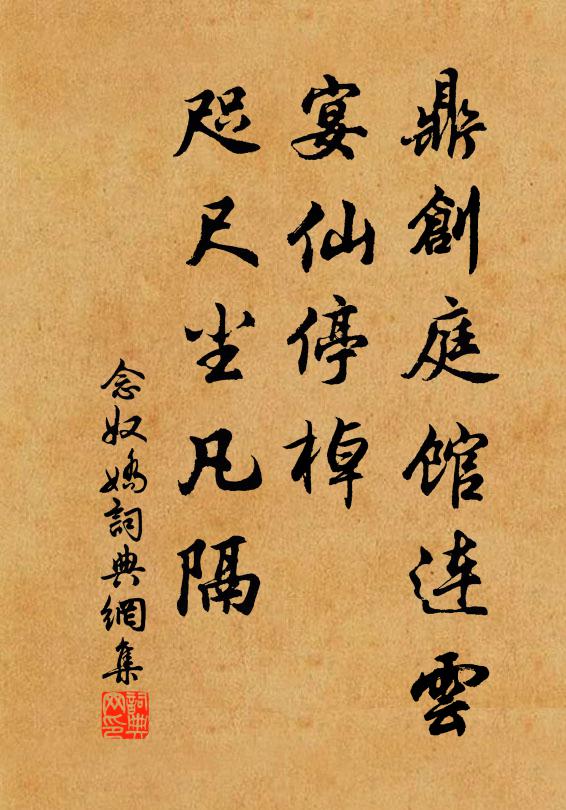 鼎創庭馆連雲
宴仙停棹
咫尺尘凡隔
念奴嬌詞典網集
詞典网印